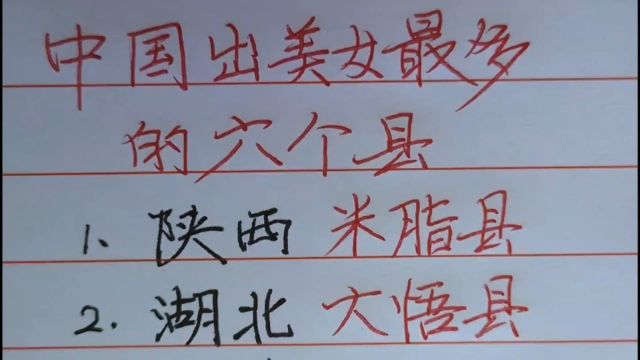 中国出美女最多
的六个县
1、陕西 米脂县
2. 湖北 大悟县